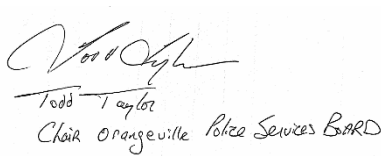 Todd Taylor
Todd Taylor
Chair Orangeville Police Services BOARD